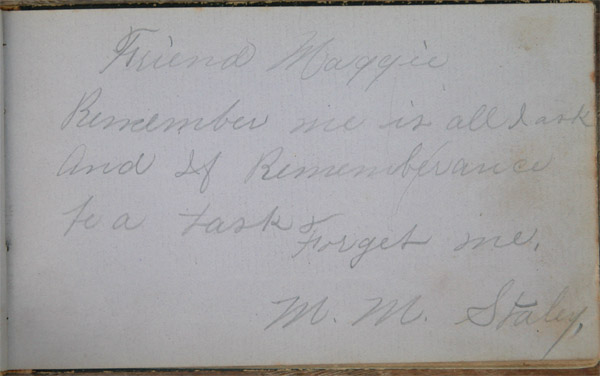 Friend Maggie
Remember me is all I ask
And If Rememberance
be a task Forget me.
M. M. Staley,